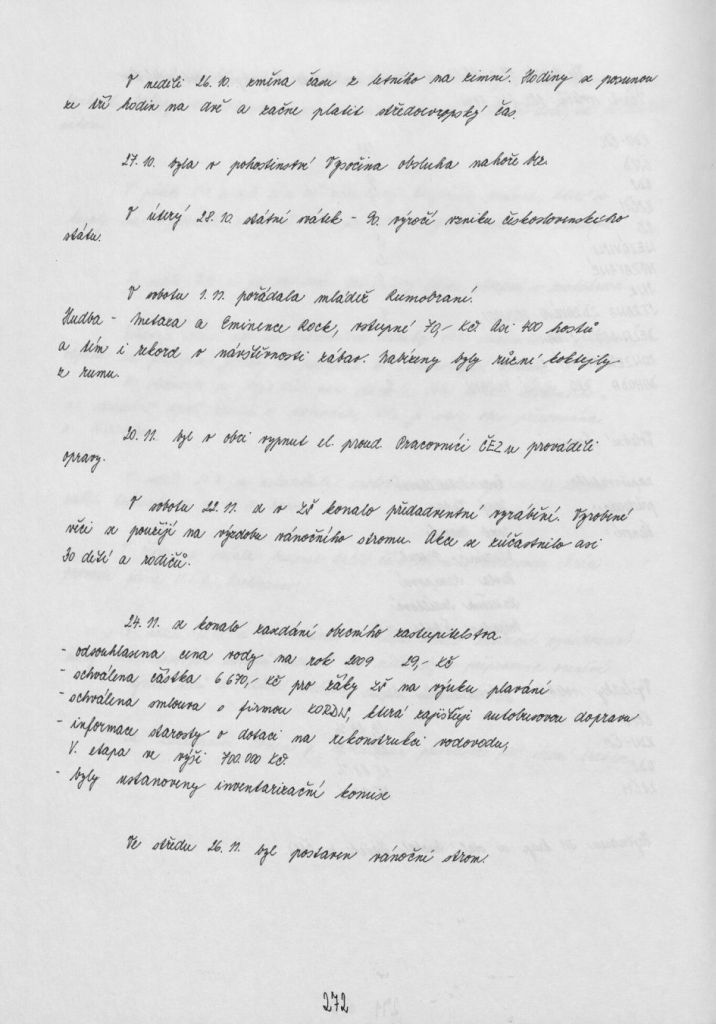 V neděli 26.10. změna času z letního na zimní. Hodiny se posunou
ze tří hodin na dvě a začne platit středoevropský čas.
27.10. byla v pohostinství Vysočina obsluha nahoře bez.
V úterý 28.10. státní svátek - 90. výročí vzniku československého
státu.
V sobotu 1.11. pořádala mládež Rumobraní.
Hudba - Metaxa a Eminence Rock, vstupné 70,- Kč. Asi 400 hostů
a tím i rekord v návštěvnosti zábav. Nabízeny byly různé koktejly
z rumu.
20.11. byl v obci vypnut el. proud. Pracovníci ČEZu prováděli
opravy.
V sobotu 22.11. se v ZŠ konalo předadventní vyrábění. Vyrobené
věci se použijí na výzdobu vánočního stromu. Akce se zúčastnilo asi
30 dětí a rodičů.
24.11. se konalo zasedání obecního zastupitelstva.
- odsouhlasena cena vody na rok 2009 29,- Kč
- schválena částka 6 670,- Kč pro žáky ZŠ na výuku plavání
- schválena smlouva s firmou KORDIS, která zajišťuje autobusovou dopravu
- informace starosty o dotaci na rekonstrukci vodovodu,
V. etapa ve výši 700.000 Kč.
- byly ustanoveny inventarizační komise
Ve středu 26.11. byl postaven vánoční strom.
272